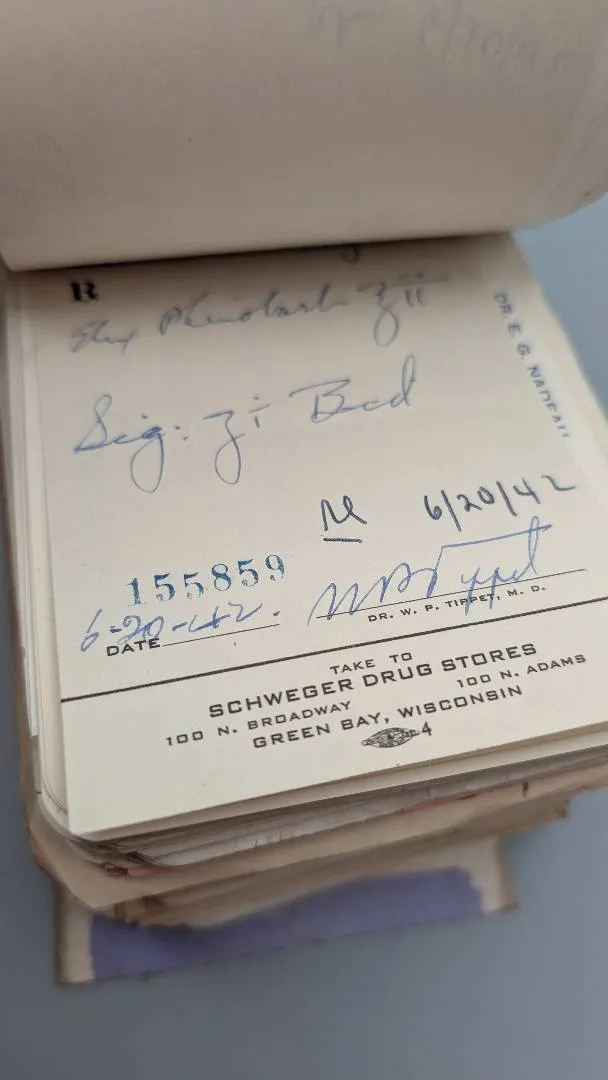 R
Elix Phenobarb ʒii
Sig: ʒi Bid
DR. E. G. NADEAU
M 6/20/42
155859
6-20-42.
WP Tippet
DATE
DR. W. P. TIPPET, M. D.
TAKE TO
SCHWEGER DRUG STORES
100 N. BROADWAY 100 N. ADAMS
GREEN BAY, WISCONSIN
4